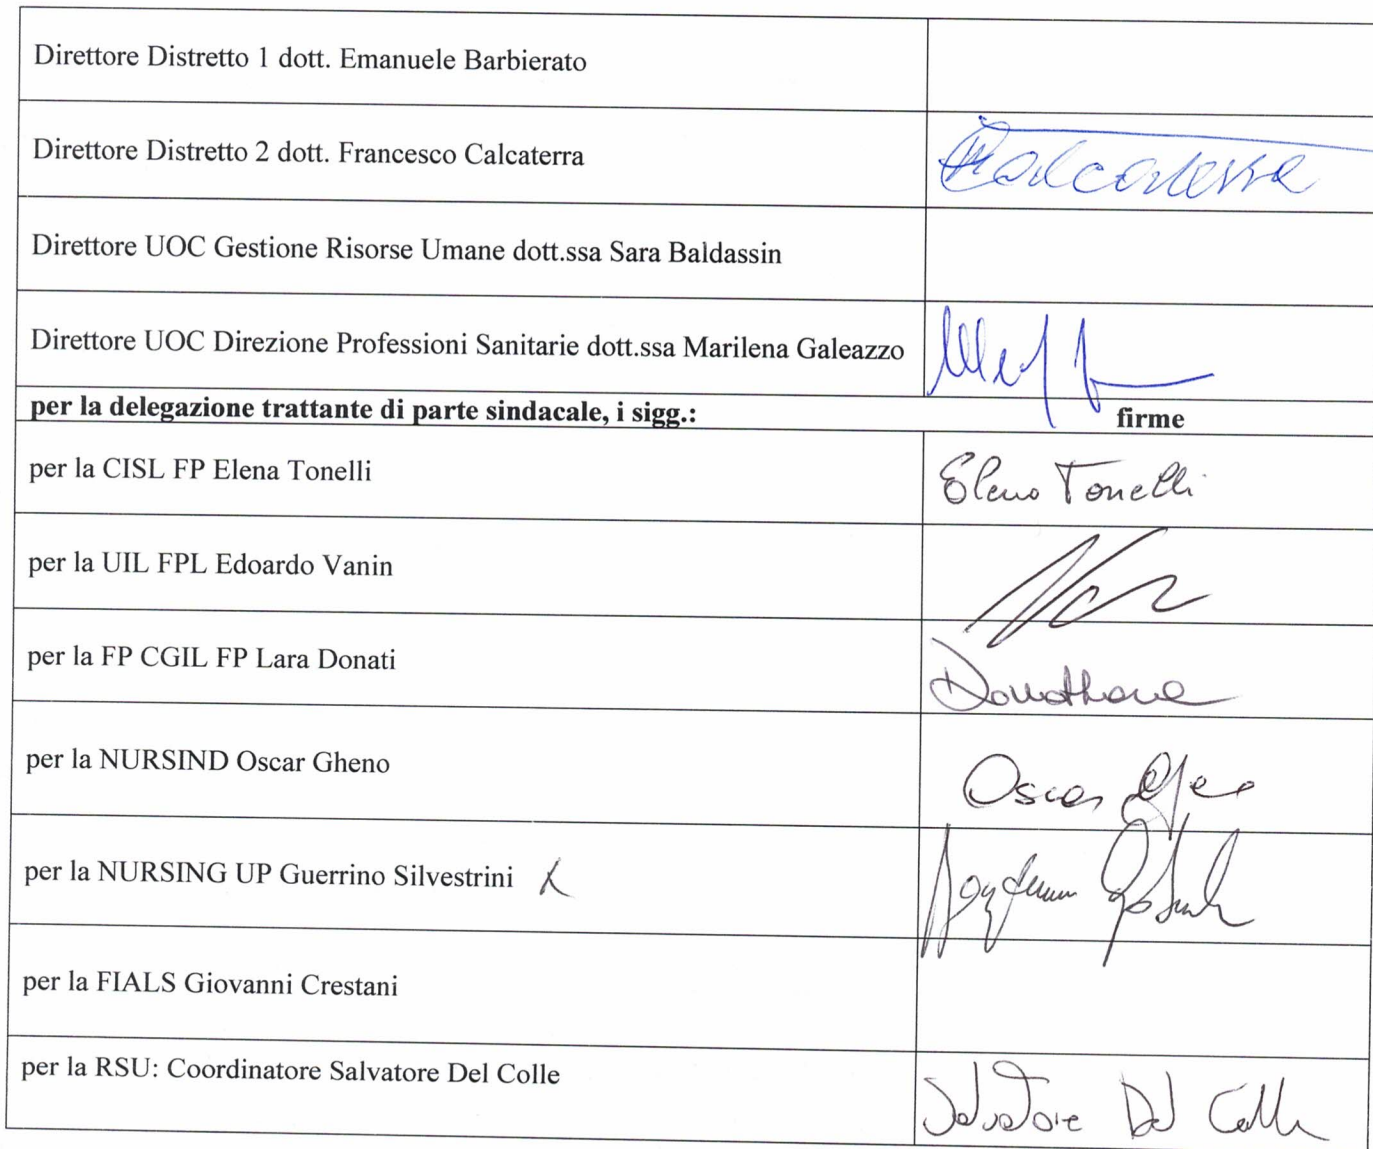 Direttore Distretto 1 dott. Emanuele Barbierato
Direttore Distretto 2 dott. Francesco Calcaterra
Calcaterra
Direttore UOC Gestione Risorse Umane dott.ssa Sara Baldassin
Direttore UOC Direzione Professioni Sanitarie dott.ssa Marilena Galeazzo
per la delegazione trattante di parte sindacale, i sigg.: firme
per la CISL FP Elena Tonelli
Elena Tonelli
per la UIL FPL Edoardo Vanin
per la FP CGIL FP Lara Donati
per la NURSIND Oscar Gheno
Oscar
per la NURSING UP Guerrino Silvestrini
per la FIALS Giovanni Crestani
per la RSU: Coordinatore Salvatore Del Colle
Salvatore Del Colle